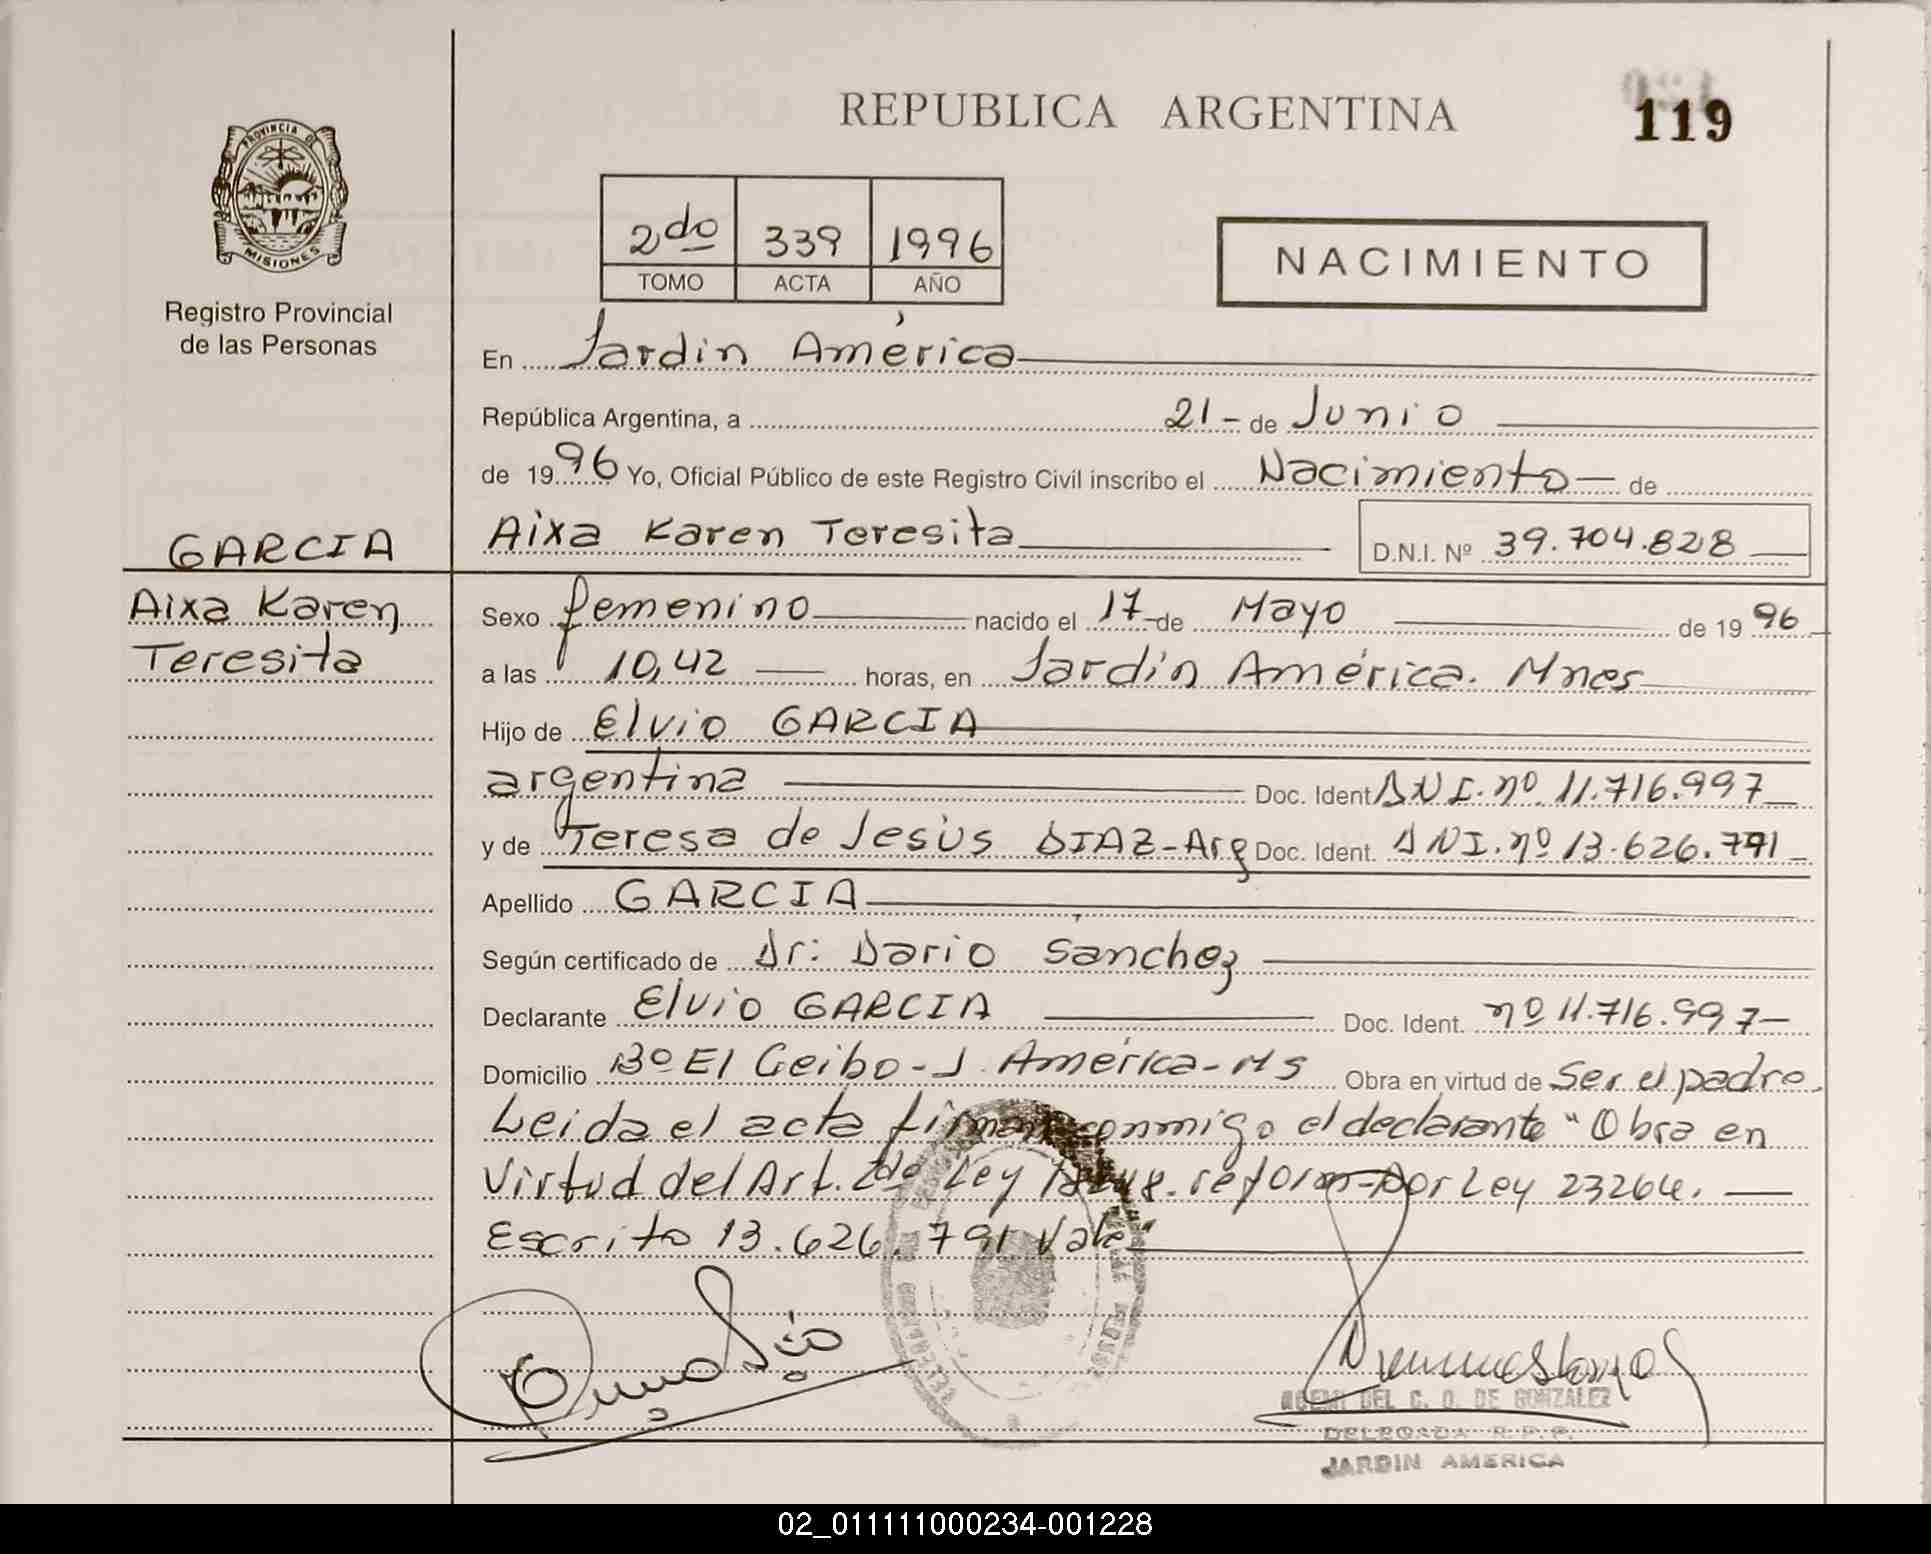 119
REPUBLICA ARGENTINA
PROVINCIA DE
MISIONES
Registro Provincial
de las Personas
2do 339 1996
TOMO ACTA AÑO
NACIMIENTO
En Jardin América
República Argentina, a 21 - de Junio
de 1996 Yo, Oficial Público de este Registro Civil inscribo el Nacimiento - de
GARCIA
Aixa Karen Teresita D.N.I. Nº 39.704.828
Aixa Karen
Teresita
Sexo femenino nacido el 17 - de Mayo de 1996
a las 10,42 horas, en Jardín América. Mnes
Hijo de Elvio GARCIA
argentina Doc. Ident DNI. nº 11.716.997
y de Teresa de Jesús DIAZ - Arg Doc. Ident. DNI. nº 13.626.791
Apellido GARCIA
Según certificado de Dr: Dario Sánchez
Declarante Elvio GARCIA Doc. Ident. nº 11.716.997
Domicilio Bº El Ceibo - J. América - Ms Obra en virtud de Ser el padre.
Leida el acta conmigo el declarante "Obra en
Virtud del Art. 2do Ley reform- por Ley 23264.
Escrito 13.626.791 Vale"
DEL C. O. DE GONZALEZ
DELEGADA R.P.P.
JARDIN AMERICA
02_011111000234-001228